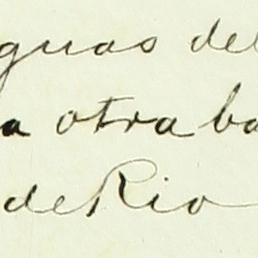 guas del
a otra ba
de Rio